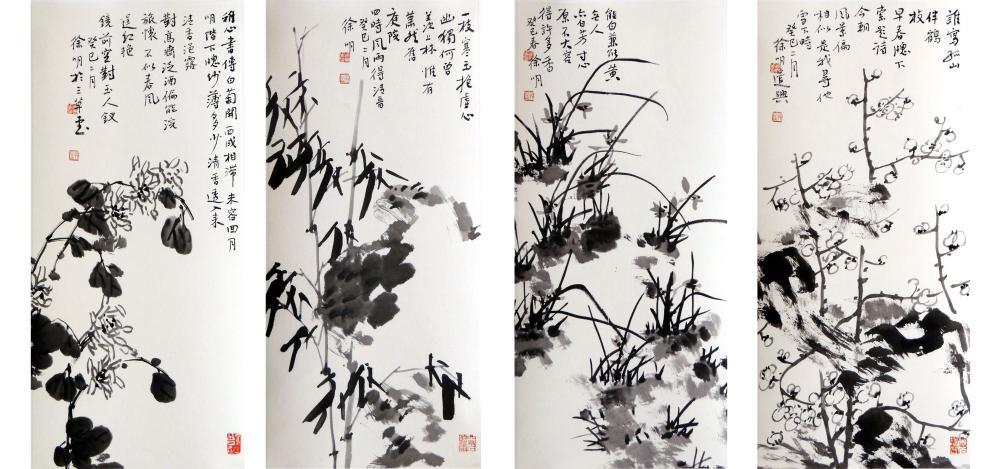 稚心書傳白菊開西成相滯未容回月
明階下牕紗薄多少清香透入来
清香浥露
對高齋泛酒偏能浣
旅懷不似春風
逞紅艳
鏡前空對玉人釵
癸巳二月
徐明於三草堂
一枝寒玉抱虛心
幽獨何曾
羨上林惟有
蕭然舊
庭院
四時風雨得清音
癸巳二月
徐明
能白兼能黄
無人
亦自芳寸心
原不大容
得許多香
癸巳春徐明
誰寫孤山
伴鶴
枝
早春牕下
索題詩
今朝
風景偏
相似是我尋他
雪下時
癸巳二月
徐明遣興